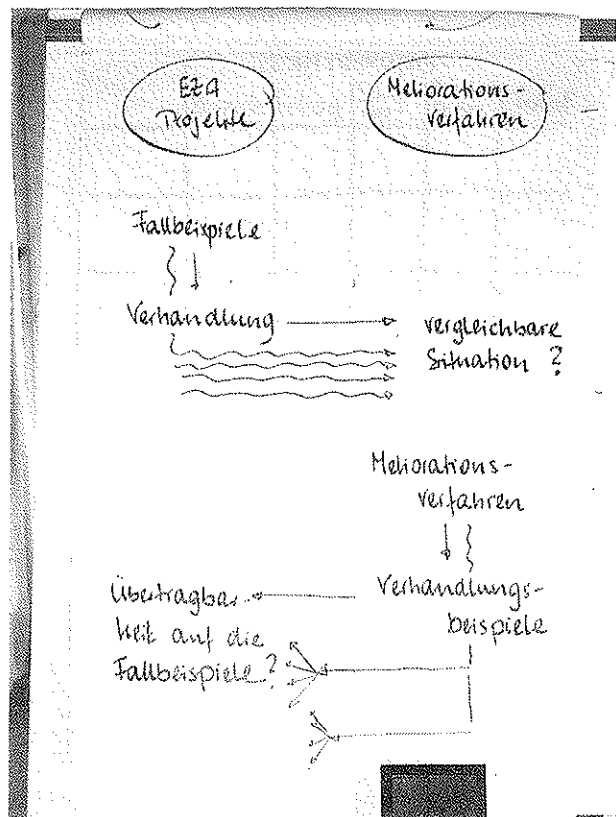 EZA
Projekte
Meliorations-
verfahren
Fallbeispiele
Verhandlung
vergleichbare
Situation ?
Meliorations-
verfahren
Verhandlungs-
beispiele
Übertragbar
keit auf die
Fallbeispiele ?